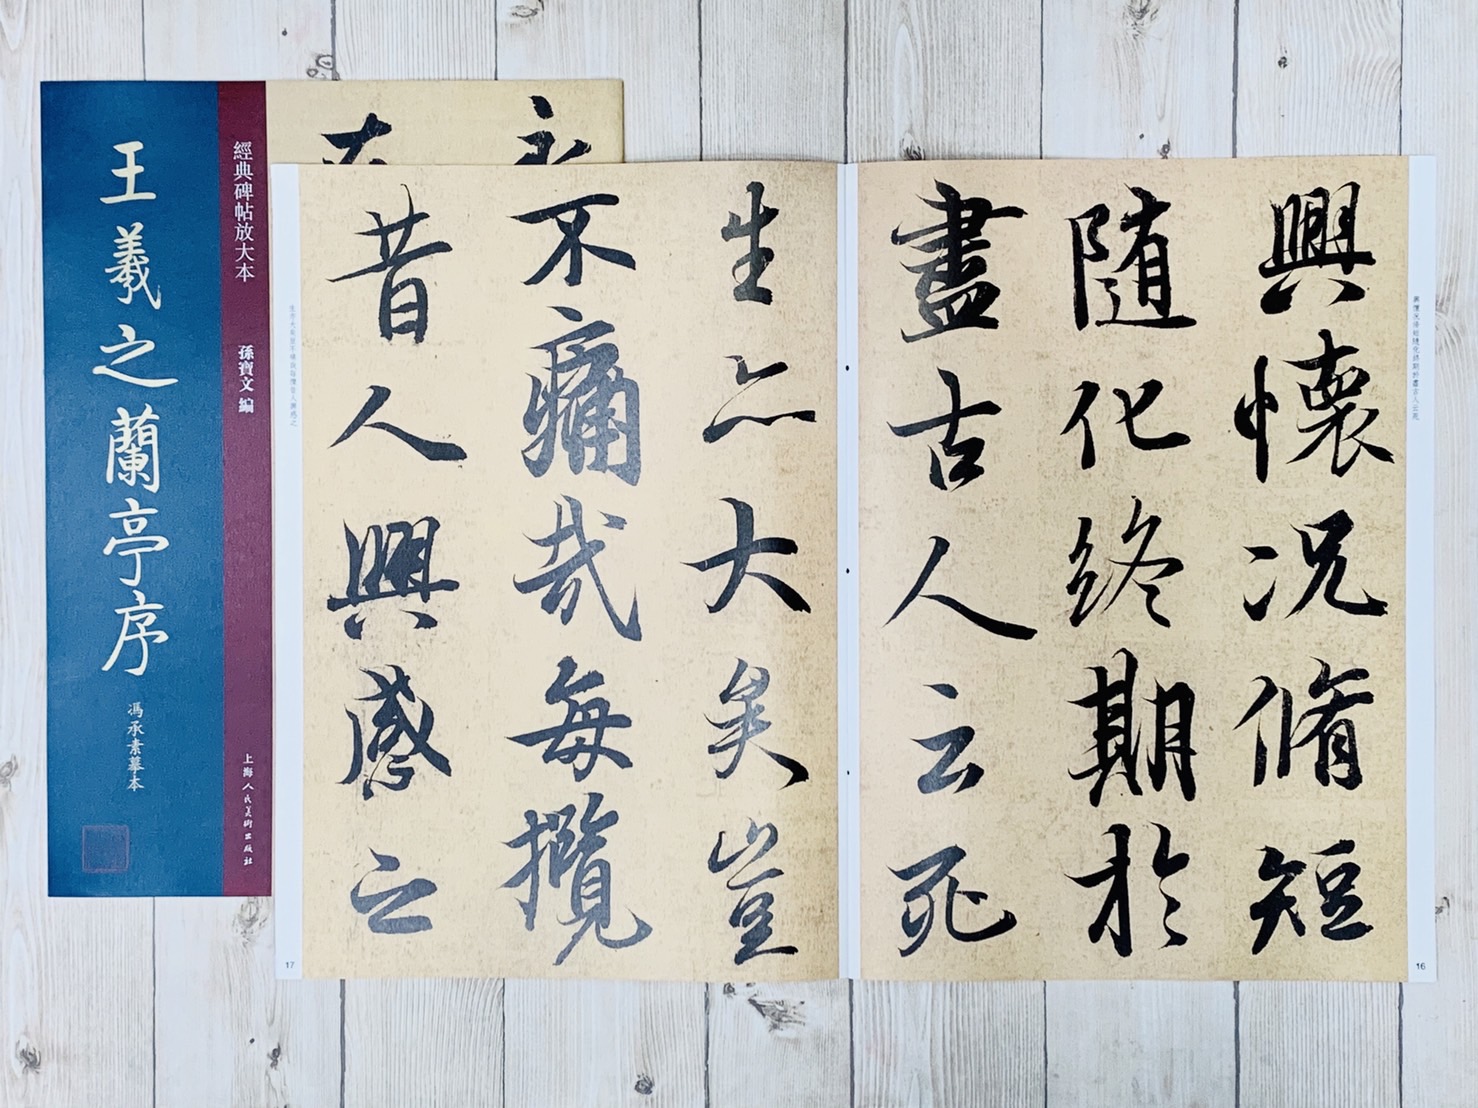 王羲之蘭亭序
馮承素摹本
經典碑帖放大本
孫寶文 編
上海人民美術出版社
興懷况脩短
随化終期於
盡古人云死
生亦大矣豈
不痛哉每攬
昔人興感之
興懷況脩短隨化終期於盡古人云死
16
生亦大矣豈不痛哉每攬昔人興感之
17